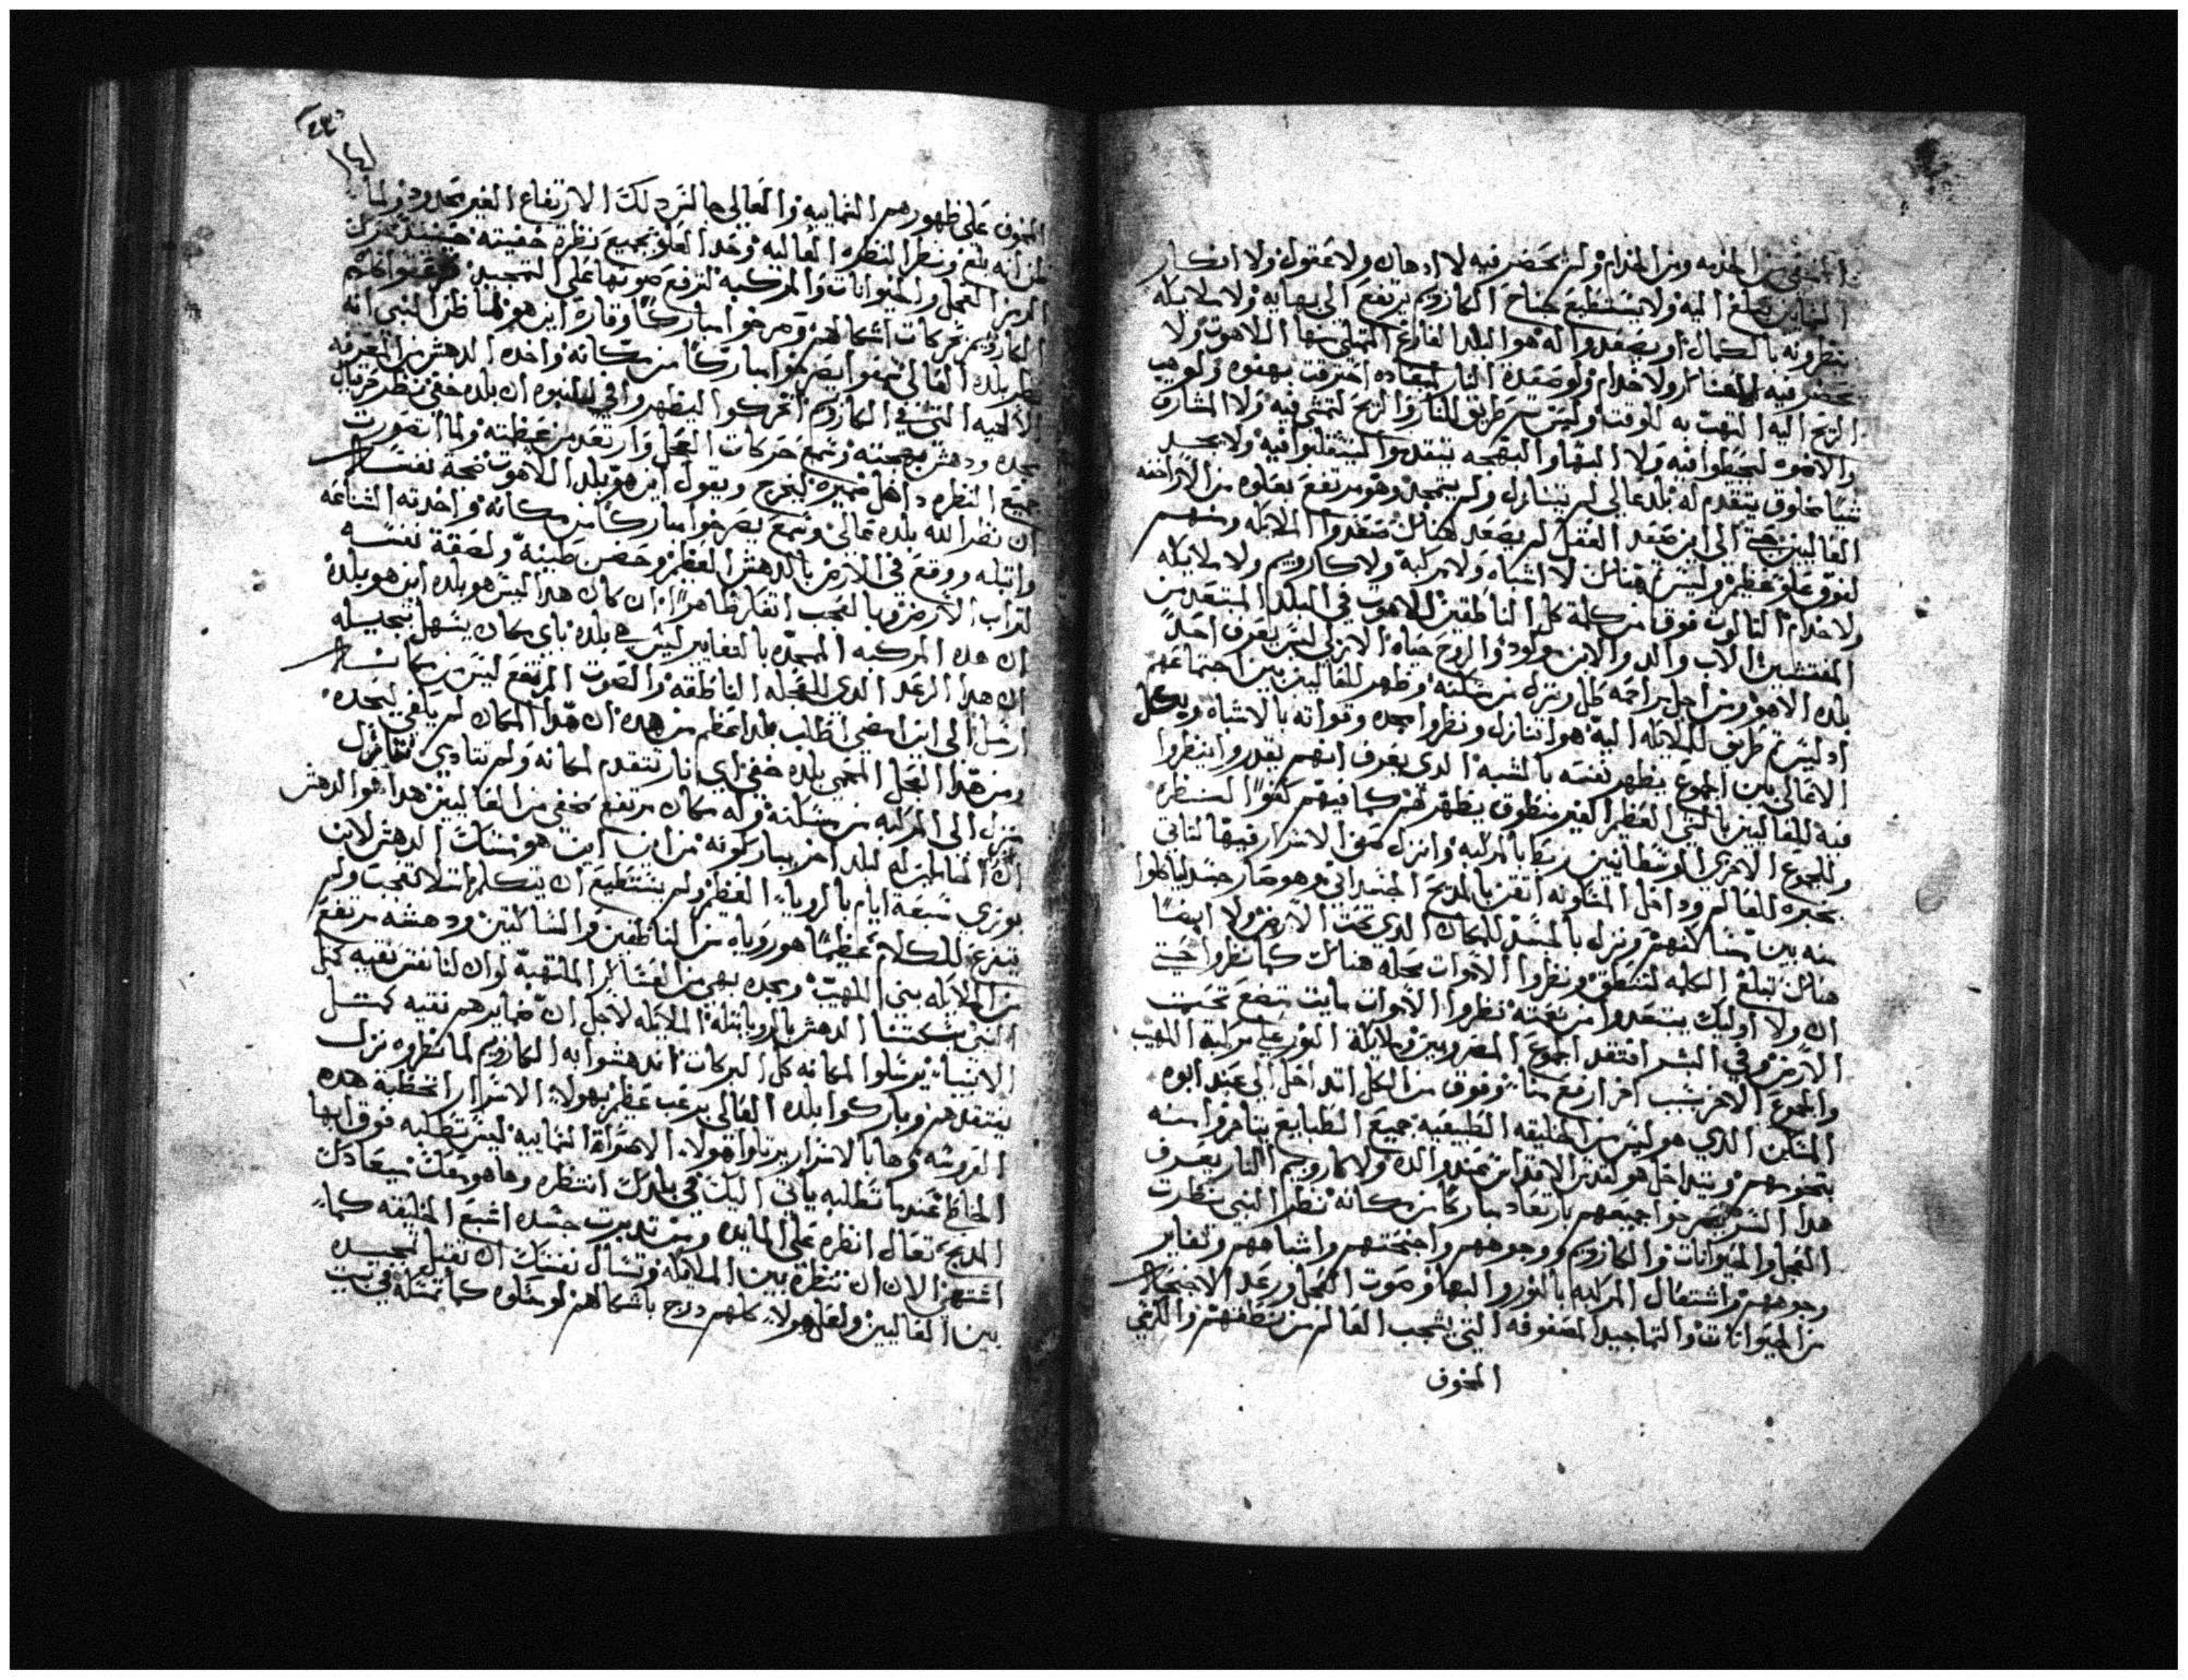 المختفي من الخدمه ومن الخدام ولم يحضر فيه لا ادهان ولا عقول ولا افكار
تبلغ اليه ولا يستطيع جناح الكاروبيم يرتفع الى بهايه ولا ملايكه
ينظرونه بالكمال او يصعدوا له هو البلد الفارغ الممتلي منها اللاهوت ولا
يحضر فيه هناك ولا خدام ولو صعدة النار لميعاده احترقت بهفوه ولو هب
الريح اليه التهبت به للوقت وليس ثم طريق للنار والريح لتمشي فيه ولا المشارق
والاضوه ليحيطوا فيه ولا البها والبهجه يتقدموا لينتقلوا فيه ولا يجسد
شيا مخلوق يتقدم له بلد عالي لم يتنازل ولم يتمجد وهو مرتفع بعلوه من
العاليين حتى الى اين صعد العقل لم يصعد هناك صعدوا الملايكه ومنهم
لفوق علو عظيم وليس هناك لا اشباه ولا مركبه ولا كاروبيم ولا ملايكه
ولا خدام الثالوت فوق من كلمة كل الناطقين اللاهوت في البلد المبتعد من
المفتشين الاب والد والابن مولود والروح حياه الازلي ليس يعرف احدً
بلده الا هو ومن اجل مراحمه طل ونزل من سكنه وظهر للعاليين بين اجتماعهم
اد ليس ثم طريق للملايكه اليه هوا تنازل ونظروا مجده وقواته بالاشباه وبكل
الاعالي بين الجموع يظهر نفسه بالشبه الدي يعرف انهم يقدروا ينظروا
فيه للعاليين بالنبي العظيم الغير منطوق يظهر لهم كما فيهم كفوًا لننظره
وللجموع الاخرى الوسطانيين ربط بالمركبه وانزل عمق الاسرار فيها لتاتي
بخبره للعالم وداخل المشاوره اتقن بالمديح الجسداني وهو صار جسد لياكلوا
منه بين مساكنهم ونزل بالجسد للمكان الدي تحت الارض ولا ايضًا
هناك تبلغ الكلمه لتنطق ونظروا الاموات مجله هناك كما نظروا حتى
ان ولا اوليك يبتعدوا من نعمته نظروا الاموات مايت بضع تحت
الارض وفي البشر افتقد الجموع المضروبين وملايكة النور على مركبة اللهيب
والجموع الاخر بسبب اخر ارفع منا وفوق من الكل اتداخل الى عند ابوه
المسكن الدي هو ليس من الخليقه الطبيعيه جميع الطبايع يتاخروا منه
بتخوبهم ويتداخل هو لقدس الاقداس عند والده ولا كاروبيم النار يعرف
هدا السر يصرخوا جميعهم بارتعاد مباركًا من مكانه نظر النبي نظرت
العجل والحيوانات والكاروبيم ووجوههم واجنحتهم واشباههم وتغاير
وجوههم واشتعال المركبه بالنور والبها وصوت العجل ورعد الاجنحه
من الحيوانات والتماجيد المصفوفه التي يتعجب العالم من نطقهم والكرسي
المخوف
المخوف على ظهورهم السماييه والعالي جالس دلك الارتفاع الغير محدود ولما
ظن انه بلغ ونظر النظره العاليه وحد العلو بجميع نظرة خفيته حينيد حرك
الرمز العجل والحيوانات والمركبه لترفع صوتها على التمجيد
الكاروبيم بحركات اشكالهم وصرخوا مباركًا وقارة اين هو لما ظن النبي انه
نظر بلده العالي سمعوا يصرخوا مباركًا من مكانه واخده الدهش من المعرفه
الالهيه التي في الكاروبيم اتحركوا ليظهروا في للنبوه ان بلده خفي نظر حزقيال
مجده ودهش ببهجته وسمع حركات العجل وارتعد من عظمته ولما اتصورت
جميع النظره داخل ضميره ليخرج ويقول اين هو بلد اللاهوت
ان نظر الله بلده عالي وسمع يصرخوا مباركًا من مكانه واخدته الشناعه
واتبله ووقع في الارض بالدهش العظيم وحضن طبيعه ولصقة نفسه
لتراب الارض وبالعجب اتفكر ظاهرًا ان كان هدا ليس هو بلده اين هو بلده
ان هده المركبه الممجده بالتغايير ليس هي بلده باي مكان يسهل تمجيله
ان هدا الرعد الدي للعجله الناطقه والصوت المرتفع ليس من مكانه
ارسل الى اين امضي اطلب بلد اعظم من هده ان هدا المكان لم يكفي لمجده
ومن هدا العجل المحمي بلده خفي اي نار تتقدم لمكانه ولم تنادي
نزل الى المركبه من مسكنه وله مكان مرتفع مخفي من العاليين هدا هو الدهش
ان الحاملين له لبلد اخر يباركونه من اين هو مسكنك الدهش لابن
بوزي سبعة ايام بالروياء العظيم ولم يستطيع ان يتكلم انسلا لتعجب ولم
يتفرغ للكلام عظيمًا هو روياه من الناطقين والساكتين ودهشه مرتفع
من الملايكه بني اللهيب ومجده بهي من العساكر الملتهبه لو ان لنا نفس نقيه كمثل
النبي سكتتنا الدهش بالرويا بتلة الملايكه لاجل ان ضمايرهم نقيه كمثل
الانبيا يرسلوا لمكانه كل البركات اندهشوا به الكاروبيم لما نظروه نزل
يفتقدهم وباركوا بلده العالي برعب عظيم بهولاء الاسرار الخطبه هده
العروسه وها بالاسرار يرتلوا هولاء الاصوات السماييه ليس تطلبه فوق ايها
الخاطي عندما تطلبه ياتي اليك في بلدك انتظره وها هو معك بميعادك
المديح تعال انظره على المايده وبين تدبرت جسده اشبع الخليقه كما
اشتهي الان ان تنظره بين الملايكه وتسال نفسك ان تقبل تمجيده
بين العاليين ولعل هولاء كلهم درج باشكالهم لو متلوه كما تمتله في بيت